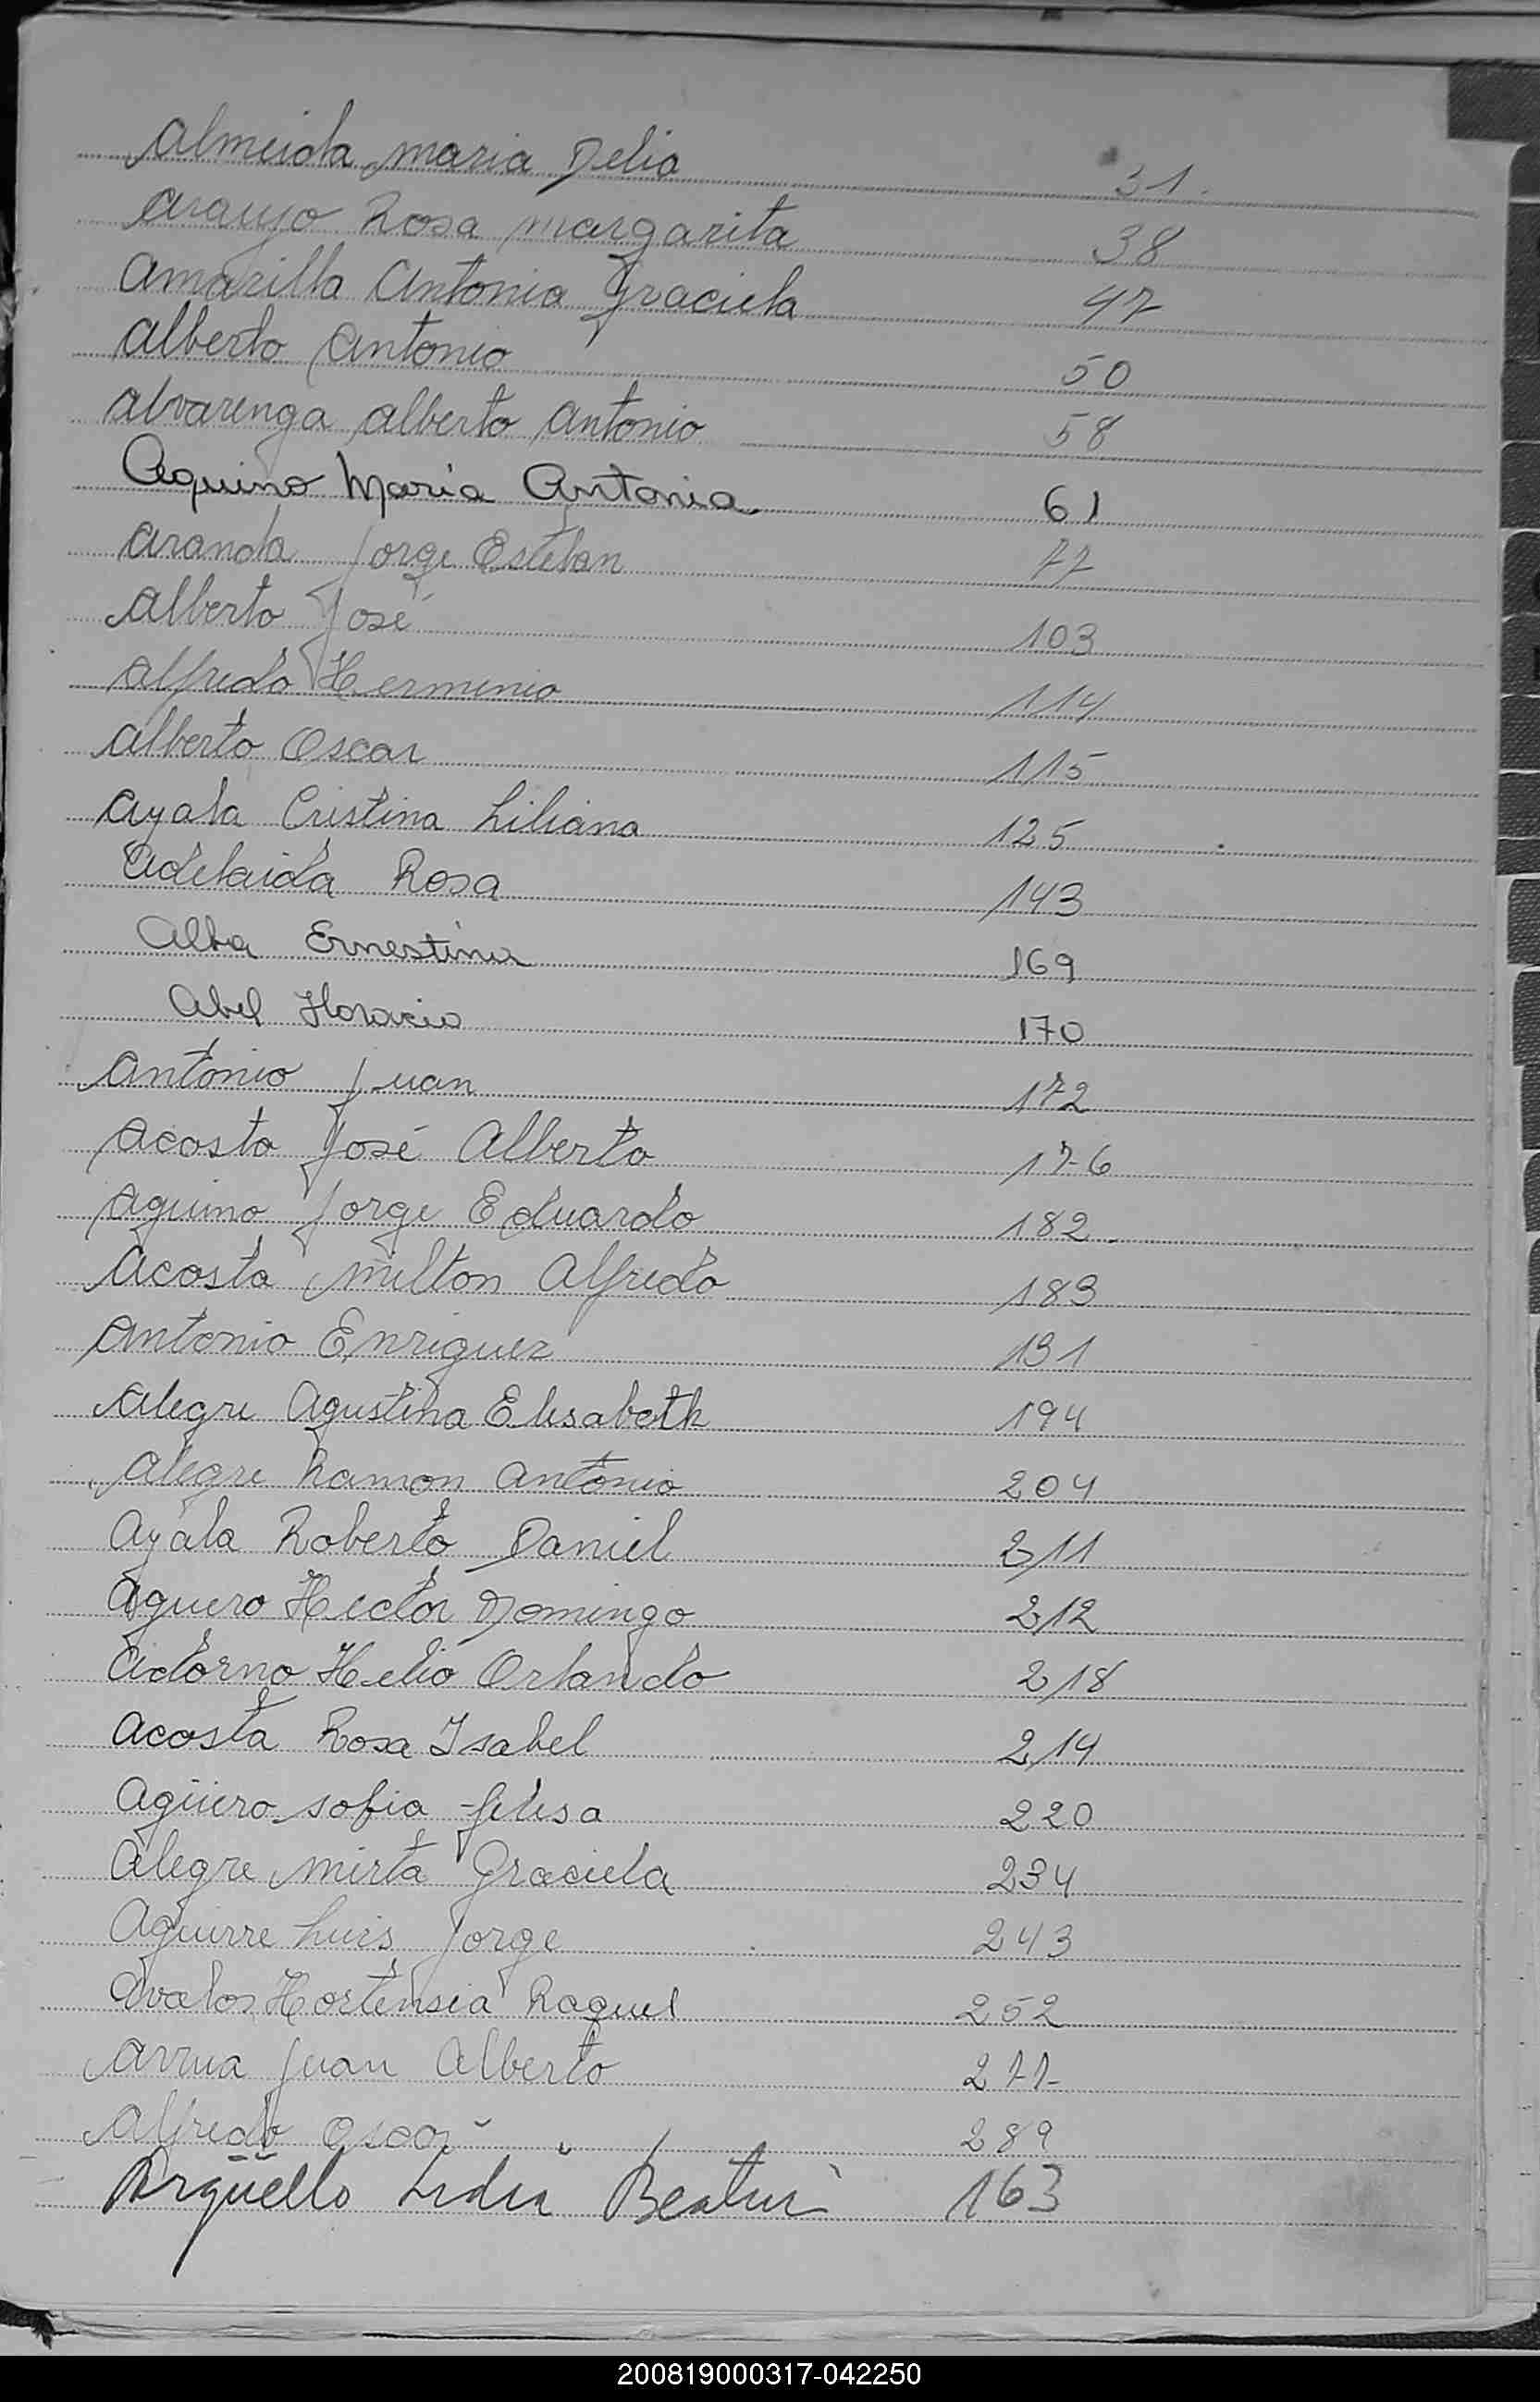 Almeida Maria Delia 31.
Araujo Rosa Margarita 38
Amarilla Antonia Graciela 47
Alberto Antonio 50
Alvarenga Alberto Antonio 58
Aquino Maria Antonia 61
Aranda Jorge Esteban 77
Alberto José 103
Alfredo Herminio 114
Alberto Oscar 115
Ayala Cristina Liliana 125
Adelaida Rosa 143
Alba Ernestina 169
Abel Horacio 170
Antonio Juan 172
Acosta José Alberto 176
Aquino Jorge Eduardo 182.
Acosta Milton Alfredo 183
Antonio Enriquez 191
Alegre Agustina Elisabeth 194
Alegre Ramon Antonio 204
Ayala Roberto Daniel 211
Aguero Hector Domingo 212
Adorno Helio Orlando 218
Acosta Rosa Isabel 214
Agüero Sofia felisa 220
Alegre Mirta Graciela 234
Aguirre Luis Jorge 243
Avalos Hortensia Raquel 252
Arrua Juan Alberto 277
Alfredo Oscar 289
Argüello Lidia Beatriz 163
200819000317-042250